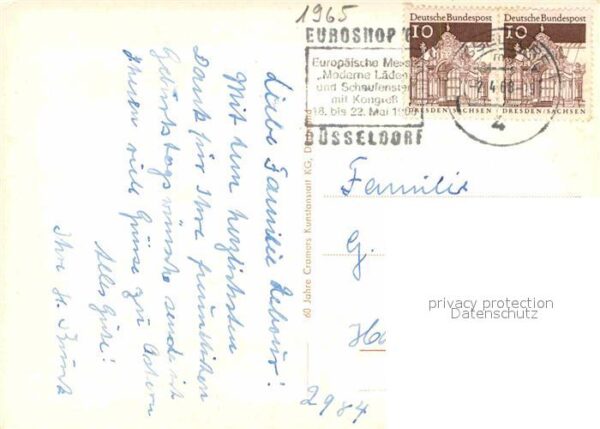 1965
EUROSHOP
Europäische Messe
„Moderne Läden
und Schaufenster
mit Kongreß
18. bis 22. Mai
DÜSSELDORF
Deutsche Bundespost
10
DRESDEN/SACHSEN
Deutsche Bundespost
10
DRESDEN/SACHSEN
4
Liebe Familie
Mit dem herzlichsten
Dank für Ihre freundlichen
Geburtstagswünsche sende ich
Ihnen viele Grüsse zu Ostern
Alles Gute!
Ihre
60 Jahre Cramers Kunstanstalt KG, Dortmund
Familie
G.
Ha
privacy protection
Datenschutz
2984